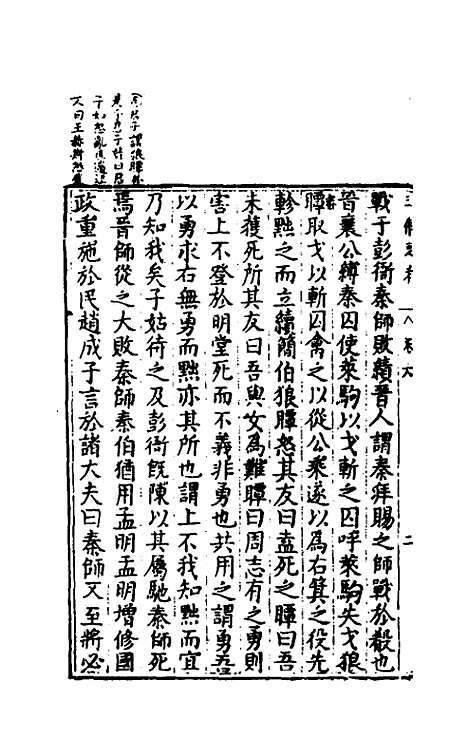 戰于彭衙秦師敗績晉人謂秦拜賜之師戰於殽也
晉襄公縛秦囚使萊駒以戈斬之囚呼萊駒失戈狼
瞫取戈以斬囚禽之以從公乘遂以為右箕之役先
軫黜之而立續簡伯狼瞫怒其友曰盍死之瞫曰吾
未獲死所其友曰吾與女為難瞫曰周志有之勇則
害上不登於明堂死而不義非勇也共用之謂勇吾
以勇求右無勇而黜亦其所也謂上不我知黜而宜
乃知我矣子姑待之及彭衙既陳以其屬馳秦師死
焉晉師從之大敗秦師秦伯猶用孟明孟明增修國
政重施於民趙成子言於諸大夫曰秦師又至將必
君子謂狼瞫於
是乎君子詩曰君
子如怒亂庶遄沮
又曰王赫斯怒爰